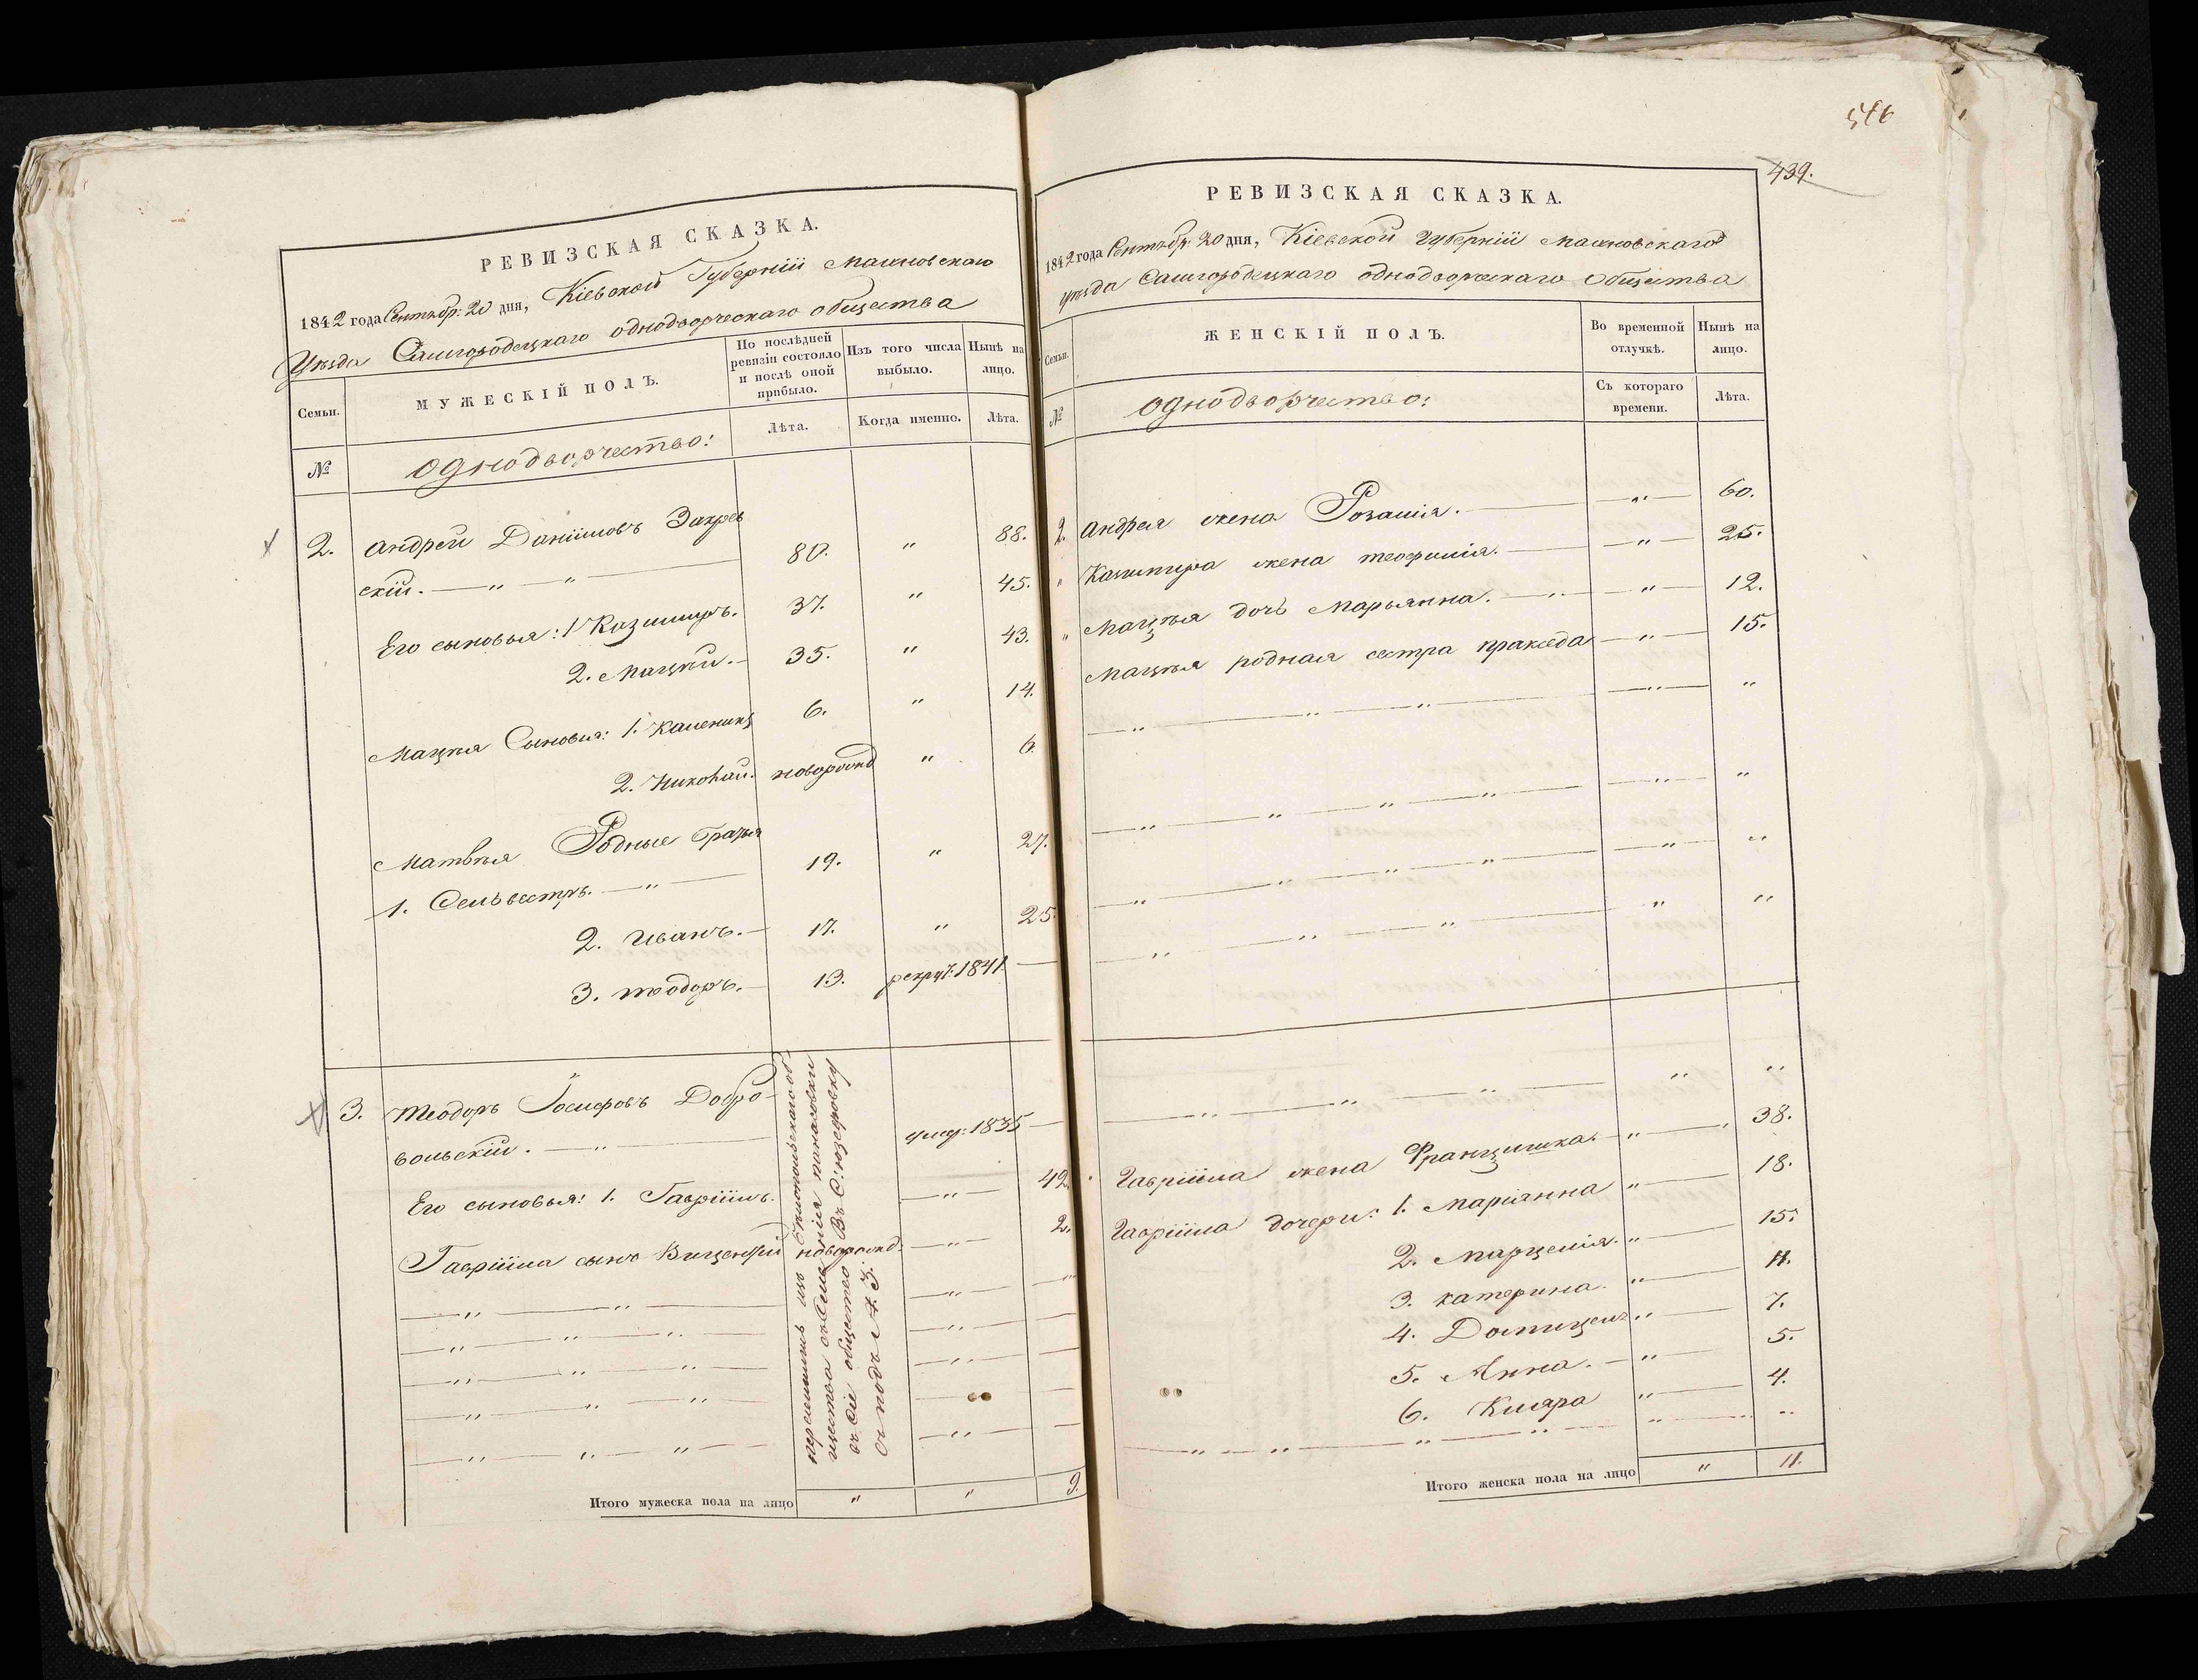 546
439.
РЕВИЗСКАЯ СКАЗКА.
1842 года Сентябр: 20 дня, Кіевской Губерніи Махновскаго
Уѣзда Самгородецкаго однодворческаго общества
Семьи.
МУЖЕСКІЙ ПОЛЪ.
По послѣдней ревизіи состояло и послѣ оной прибыло.
Изъ того числа выбыло.
Нынѣ на лицо.
№
однодворчество:
Лѣта.
Когда именно.
Лѣта.
2. Андрей Даніиловъ Закрев
скій. — " — 80. " 88.
Его сыновья: 1 Казимиръ. 37. " 45.
2. Мацѣй. — 35. " 43.
Мацѣя Сыновья: 1. 6. " 14.
2. Николай. новорожд " 6.
Матвѣя Родные братья
1. Сельвестръ. — " — 19. " 27.
2. Иванъ. — 17. " 25.
3. теодоръ. — 13. рекрут: 1841. —
3. Теодоръ Іосифовъ Добро-
вольскій. — " — умер: 1835 —
Его сыновья: 1. Гавріилъ. — " — 42.
Гавріила сынъ Вицентій новорожд: — " — 2.
— " — " —
— " — " — " —
— " — " — " —
— " — " — " —
— " — " — " —
перечислитъ изъ общества
въ сіе общество
подъ № 3.
Итого мужеска пола на лицо " " 9.
РЕВИЗСКАЯ СКАЗКА.
1842 года Сентябр: 20 дня, Кіевской Губерніи Махновскаго
уѣзда Самгородецкаго однодворческаго Общества
Семьи.
ЖЕНСКІЙ ПОЛЪ.
Во временной отлучкѣ.
Нынѣ на лицо.
№
однодворчество:
Съ котораго времени.
Лѣта.
2. Андрея жена Розалія. — " — 60.
" Казимира жена теофилія. — " — 25.
" Мацѣя дочь Марьянна. — " — 12.
Мацѣя родная сестра праксѐда — " — 15.
— " — " — " — " — "
— " — " — " — " — " — "
— " — " — " — " — "
— " — " — " — " "
— " — " — " — " "
Гавріила жена Францишка. — " — 38.
Гавріила дочери: 1. Маріянна " — 18.
2. Марцелія. " — 15.
3. катерина. " — 11.
4. Домицеля " — 7.
5. Анна. — " — 5.
6. Кляра " — 4.
— " — " — " — " — " — "
Итого женска пола на лицо " 11.